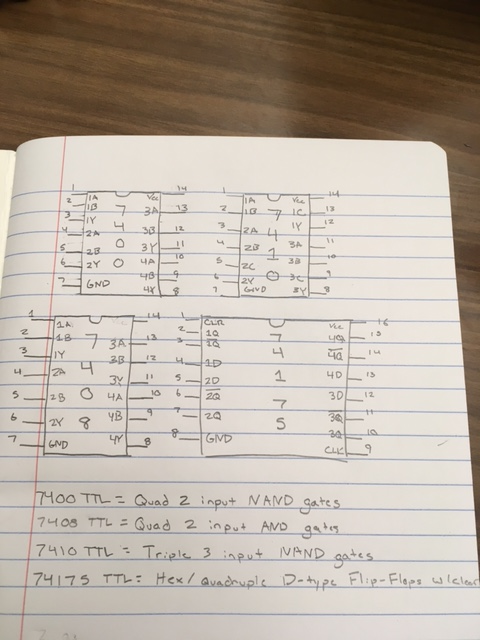 1 1A 7400 Vcc 14
2 1B 3A 13
3 1Y 3B 12
4 2A 3Y 11
5 2B 4A 10
6 2Y 4B 9
7 GND 4Y 8
1 1A 7410 Vcc 14
2 1B 1C 13
3 2A 1Y 12
4 2B 3A 11
5 2C 3B 10
6 2Y 3C 9
7 GND 3Y 8
1 1A 7408 14
2 1B 3A 13
3 1Y 3B 12
4 2A 3Y 11
5 2B 4A 10
6 2Y 4B 9
7 GND 4Y 8
1 CLR 74175 Vcc 16
2 1Q 4Q 15
3 1Q̅ 4Q̅ 14
4 1D 4D 13
5 2D 3D 12
6 2Q̅ 3Q̅ 11
7 2Q 3Q 10
8 GND CLK 9
7400 TTL = Quad 2 input NAND gates
7408 TTL = Quad 2 input AND gates
7410 TTL = Triple 3 input NAND gates
74175 TTL = Hex/Quadruple D-type Flip-Flops w/clear